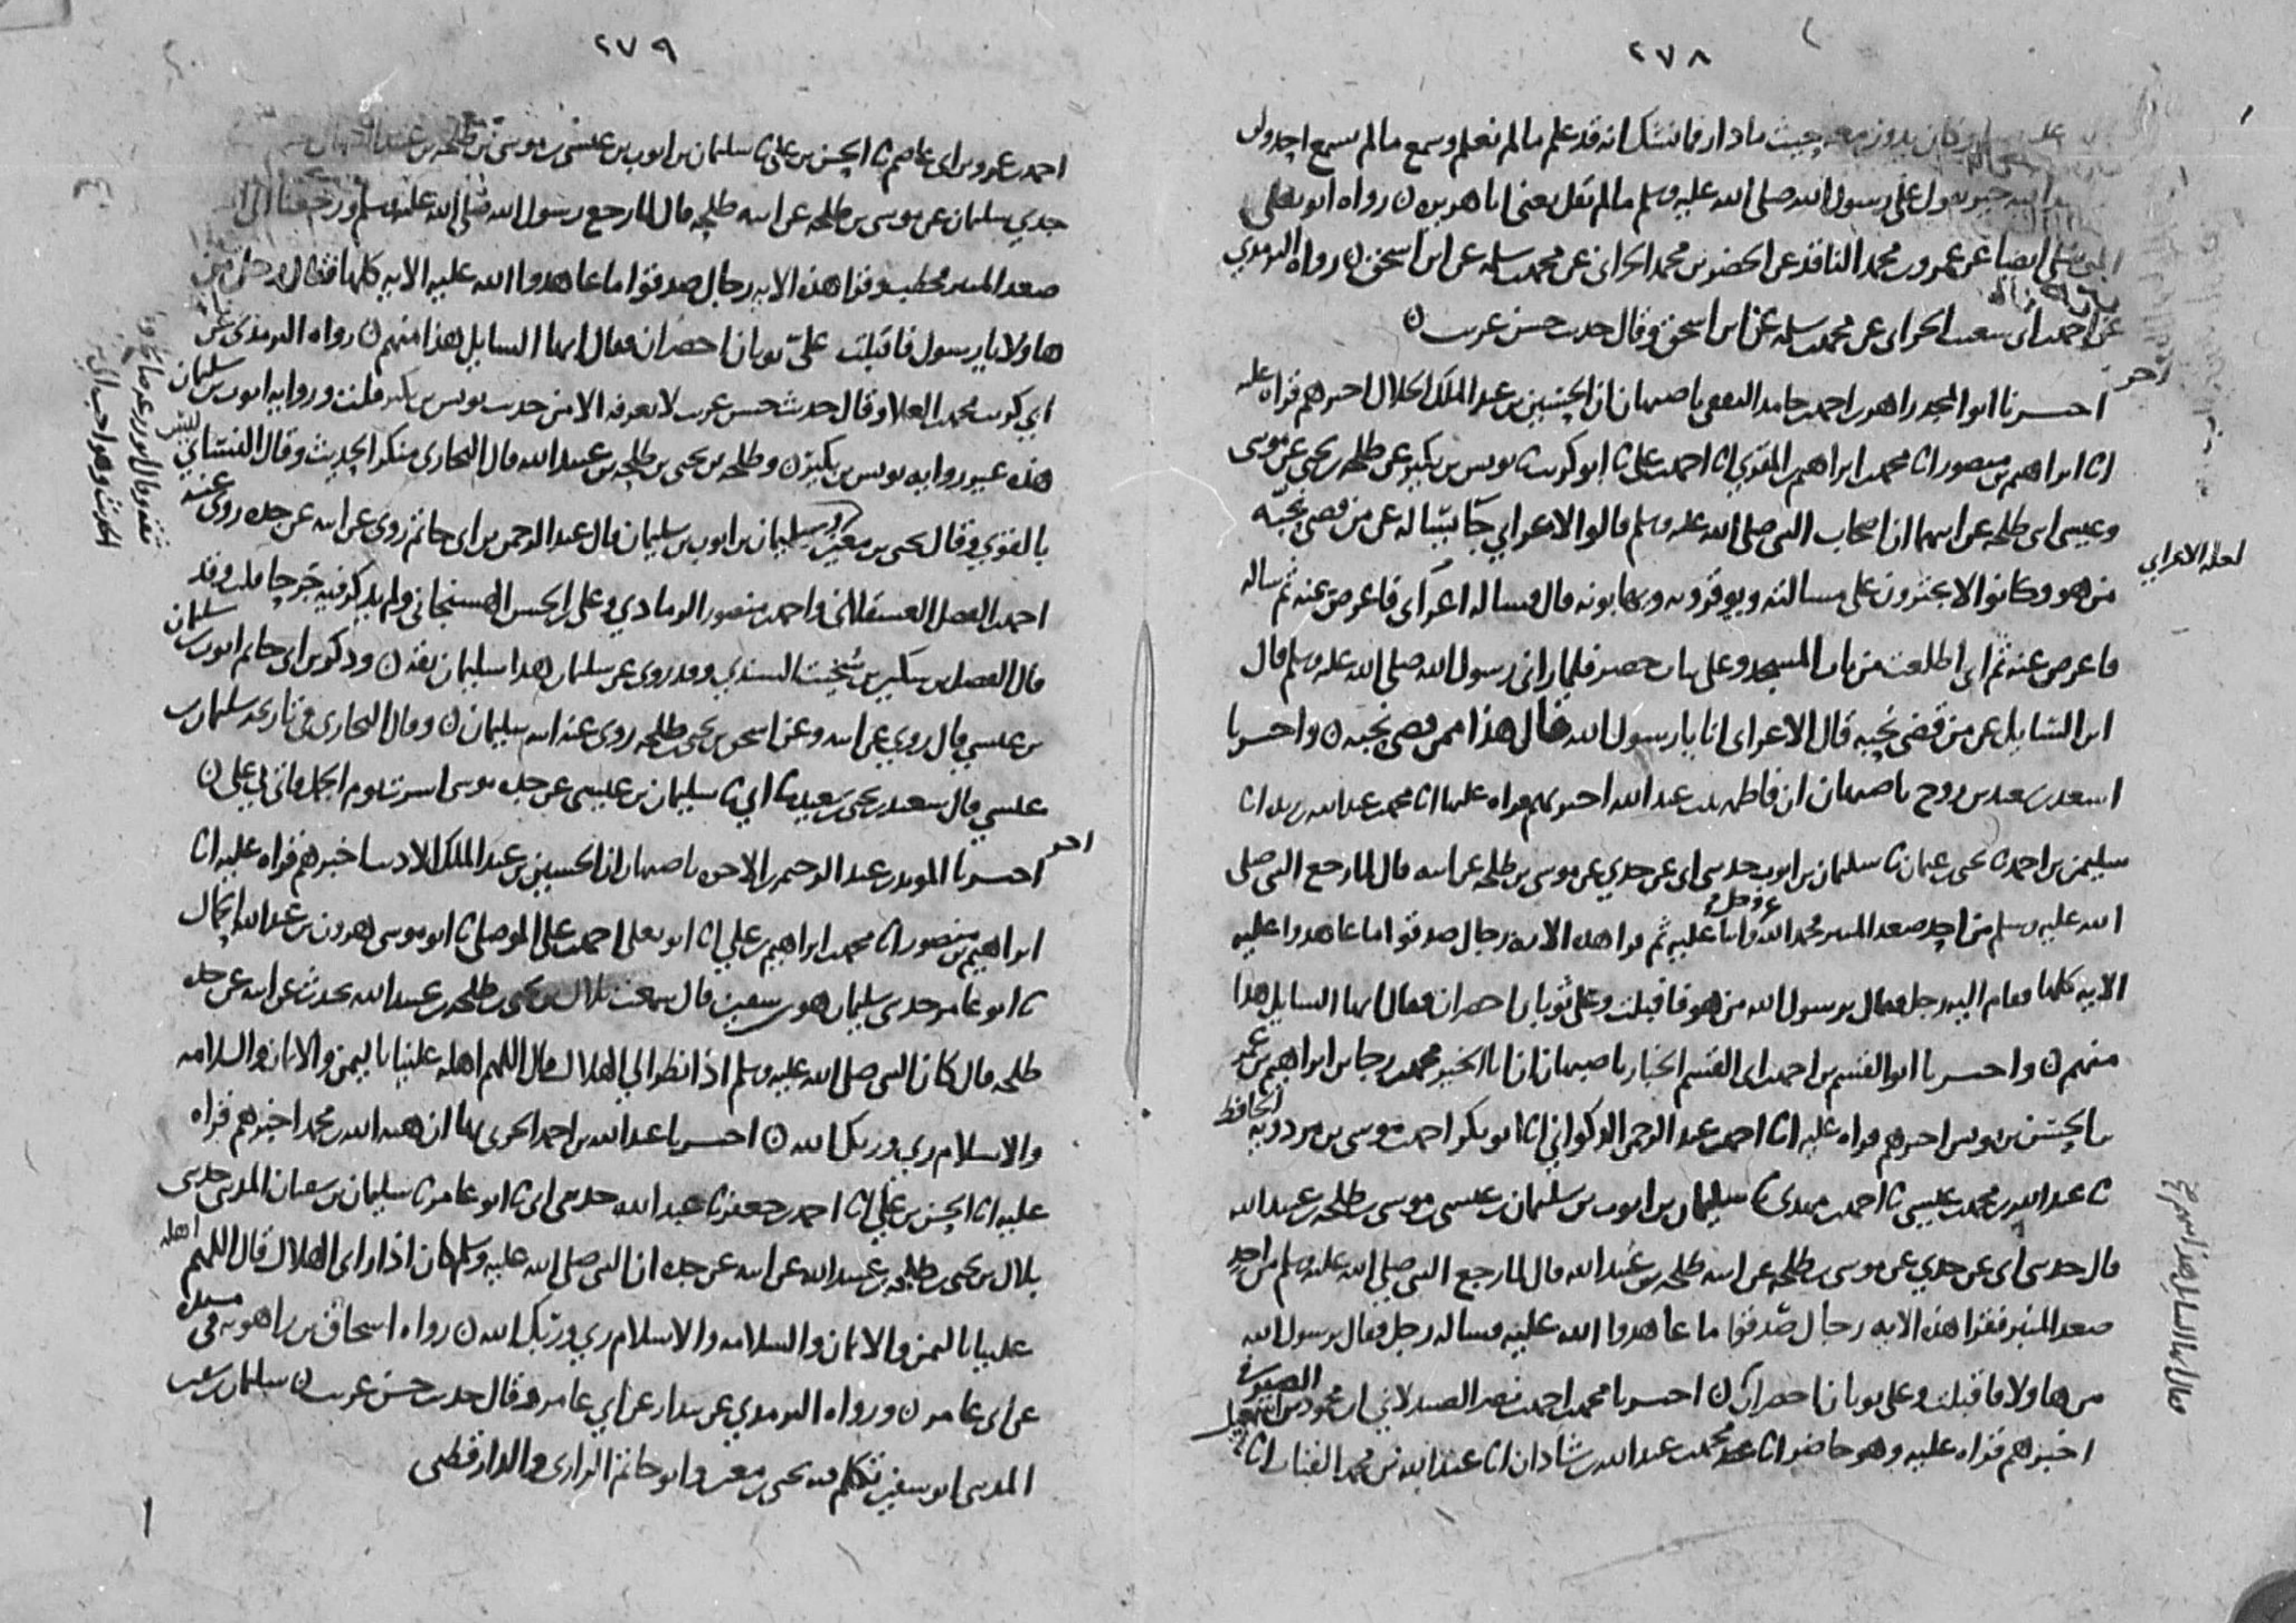 ٢٧٨
وكان يدور معه حيث ما دار فما نشك انه قد علم ما لم نعلم وسمع ما لم نسمع احد ولم
يقول على رسول الله صلى الله عليه وسلم ما لم يقل يعني ابا هريره ن رواه ابو يعلى
ايضا عن عمرو بن محمد الناقد عن الخضر بن محمد الحراني عن محمد بن سلمه عن ابن اسحق ن رواه الترمذي
عن احمد بن ابي شعيب الحراني عن محمد بن سلمه عن ابن اسحق وقال حديث حسن غريب ن
اخر
اخبرنا ابو المجد زاهر بن احمد بن حامد الثقفي باصبهان ان الحسين بن عبد الملك الخلال اخبرهم قراه عليه
انا ابراهيم بن منصور انا محمد بن ابراهيم بن المقري انا احمد بن علي ثنا ابو كريب ثنا يونس بن بكير عن طلحه بن يحيى عن موسى
وعيسى ابني طلحه عن ابيهما ان اصحاب النبي صلى الله عليه وسلم قالوا لاعرابي جا يساله عن من قضى نحبه
لعله الاعرابي
من هو وكانوا لا يجترون على مسالته ويوقرونه ويهابونه قال فساله اعرابي فاعرض عنه ثم ساله
فاعرض عنه ثم اني اطلعت من باب المسجد وعلي ثياب خضر فلما راني رسول الله صلى الله عليه وسلم قال
اين السايل عن من قضى نحبه قال الاعرابي انا يا رسول الله قال هذا ممن قضى نحبه ن واخبرنا
اسعد بن سعيد بن روح باصبهان ان فاطمه بنت عبد الله اخبرتهم قراه عليها انا محمد بن عبد الله بن ريذه انا
سليمن بن احمد ثنا يحيى بن عثمان ثنا سليمان بن ايوب حدثني ابي عن جدي عن موسى بن طلحه عن ابيه قال لما رجع النبي صلى
الله عليه وسلم من احد صعد المنبر فحمد الله عز وجل واثنا عليه ثم قرا هذه الايه رجال صدقوا ما عاهدوا عليه
الايه كلها فقام اليه رجل فقال يرسول الله من هو فاقبلت وعلي ثوبان اخضران فقال ايها السايل هذا
منهم ن واخبرنا ابو القسم بن احمد بن ابي القسم الخباز باصبهان ان ابا الخير محمد بن رجا بن ابراهيم بن عمر
بن الحسن بن يونس اخبرهم قراه عليه انا احمد بن عبد الرحمن الذكواني انا ابو بكر احمد بن موسى بن مردويه الحافظ
ثنا عبد الله بن محمد بن عيسى ثنا احمد بن مهدي ثنا سليمان بن ايوب بن سليمان بن عيسى بن موسى بن طلحه بن عبيد الله
قال حدثني ابي عن جدي عن موسى بن طلحه عن ابيه طلحه بن عبيد الله قال لما رجع النبي صلى الله عليه وسلم من احد
صعد المنبر فقرا هذه الايه رجال صدقوا ما عاهدوا الله عليه فساله رجل فقال يرسول الله
من هاولا فاقبلت وعلي ثوبان اخضران ن اخبرنا محمد بن احمد بن نصر الصيدلاني ان محمود بن اسمعيل الصيرفي
اخبرهم قراه عليه وهو حاضر انا محمد بن عبد الله بن شاذان انا عبد الله بن محمد القباب انا
فقال ايها السايل هذا منهم صح
٢٧٩
احمد بن عمرو بن ابي عاصم ثنا الحسن بن علي ثنا سليمان بن ايوب بن عيسى بن موسى بن طلحه بن عبيد الله
جدي سليمان عن موسى بن طلحه عن ابيه طلحه قال لما رجع رسول الله صلى الله عليه وسلم ورجعنا الى
صعد المنبر فخطب وقرا هذه الايه رجال صدقوا ما عاهدوا الله عليه الايه كلها فقال رجل من
هاولا يا رسول فاقبلت علي ثوبان اخضران فقال ايها السايل هذا منهم ن رواه الترمذي عن
ابي كريب محمد بن العلا وقال حديث حسن غريب لا نعرفه الا من حديث يونس بن بكير قلت وروايه ايوب بن سليمان
هذه غير روايه يونس بن بكير ن وطلحه بن يحيى بن طلحه بن عبيد الله قال البخاري منكر الحديث وقال النسائي ليس
بالقوي وقال يحيى بن معين سليمان بن ايوب بن سليمان قال عبد الرحمن بن ابي حاتم روى عن ابيه عن جده روى عنه
ثقه وقال ابو زرعه صالح
الحديث وهو احب الي
احمد بن الفضل العسقلاني واحمد بن منصور الرمادي وعلي بن الحسن الهسنجاني ولم يذكر فيه جرحا قلت وقد
قال الفضل بن سكين بن سخيت السندي وقد روى عن سليمان هذا سليمان ثقه ن وذكر بن ابي حاتم ايوب بن سليمان
بن عيسى قال روى عن ابيه وعن اسحق بن يحيى بن طلحه روى عنه ابنه سليمان ن وقال البخاري في تاريخه سليمان بن
عيسى قال سعيد بن يحيى بن سعيد ثنا ابي ثنا سليمان بن عيسى عن جده موسى اسرت يوم الجمل فاتي بي علي ن
اخر
اخبرنا المويد بن عبد الرحيم بن الاخوه باصبهان ان الحسين بن عبد الملك الاديب اخبرهم قراه عليه انا
ابراهيم بن منصور انا محمد بن ابراهيم بن علي انا ابو يعلى احمد بن علي الموصلي ثنا ابو موسى هرون بن عبد الله الحمال
ثنا ابو عامر حدثني سليمان هو بن سفين قال سمعت بلال بن يحيى بن طلحه بن عبيد الله يحدث عن ابيه عن جده
طلحه قال كان النبي صلى الله عليه وسلم اذا نظر الى الهلال قال اللهم اهله علينا باليمن والايمان والسلامه
والاسلام ربي وربك الله ن اخبرنا عبد الله بن احمد الحربي بها ان هبه الله بن محمد اخبرهم قراه
عليه انا الحسن بن علي انا احمد بن جعفر ثنا عبد الله حدثني ابي ثنا ابو عامر ثنا سليمان بن سفيان المديني حدثني
بلال بن يحيى بن طلحه بن عبيد الله عن ابيه عن جده ان النبي صلى الله عليه وسلم كان اذا راى الهلال قال اللهم اهله
علينا باليمن والايمان والسلامه والاسلام ربي وربك الله ن رواه اسحاق بن راهويه في مسنده
عن ابي عامر ن ورواه الترمذي عن بندار عن ابي عامر وقال حديث حسن غريب ن سليمان بن سفين
المديني ابو سفين تكلم فيه يحيى بن معين وابو حاتم الرازي والدارقطني